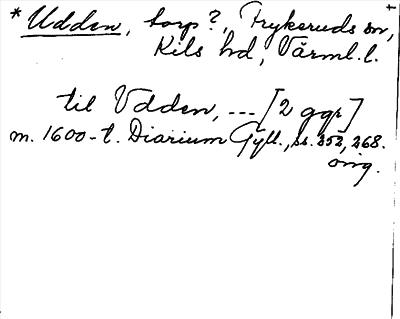 * Udden, torp?, Frykeruds sn,
Kils hd, Värml.l.
til Vdden, --- [2 ggr]
m. 1600-t. Diarium Gyll., ss. 252, 268.
orig.